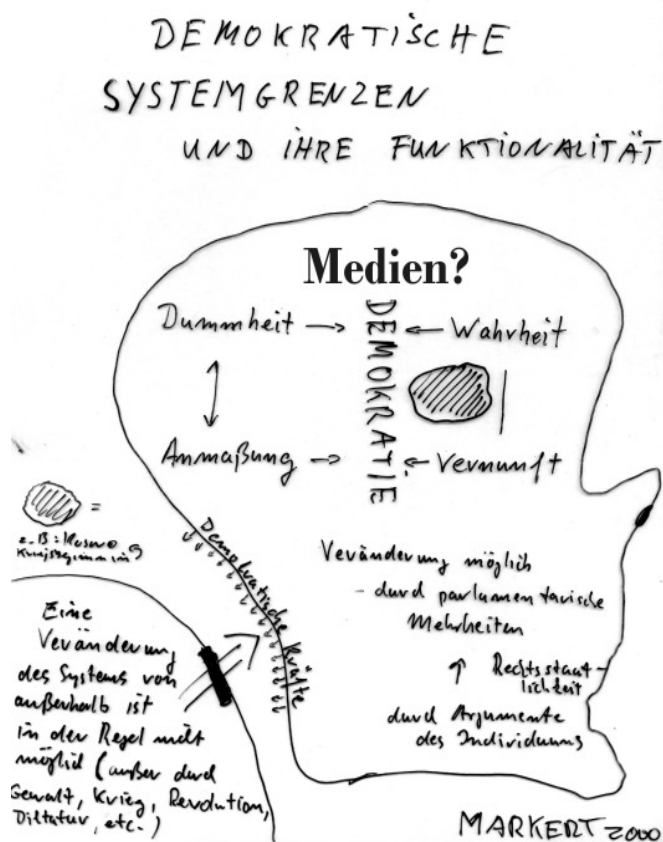 DEMOKRATISCHE
SYSTEMGRENZEN
UND IHRE FUNKTIONALITÄT
Medien?
Dummheit
DEMOKRATIE
Wahrheit
Anmaßung
Vernunft
=
z.B: Kosovo
Demokratische Kräfte
Veränderung möglich
- durch parlamentarische
Mehrheiten
Rechtsstaat-
lichkeit
durch Argumente
des Individuums
Eine
Veränderung
des Systems von
außerhalb ist
in der Regel nicht
möglich (außer durch
Gewalt, Krieg, Revolution,
Diktatur, etc.)
MARKERT 2000